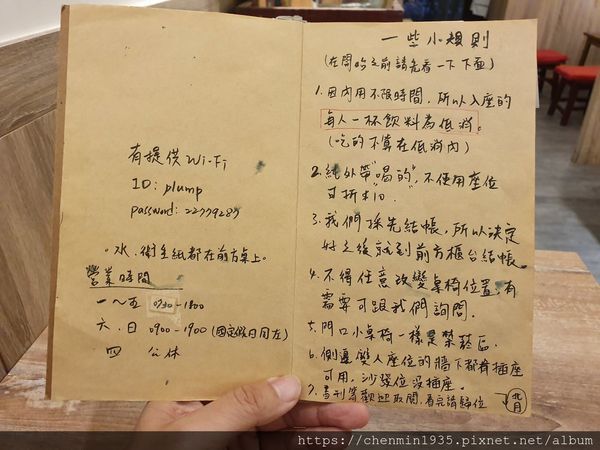 有提供 Wi-Fi
ID: plump
password: 22779287
•水、衛生紙都在前方桌上。
營業時間
一~五 0730-1800
六、日 0900-1900 (國定假日同左)
四 公休
一些小規則
(在開吃之前請先看一下下面)
1.因內用不限時間,所以入座的
每人一杯飲料為低消。
(吃的不算在低消內)
2.純外帶"喝的",不使用座位
可折扣10.
3.我們採先結帳,所以決定
好之後就到前方櫃台結帳。
4.不得任意改變桌椅位置,有
需要可跟我們詢問.
5.門口小桌椅一樣是禁菸區.
6.側邊雙人座位的牆下都有插座
可用,沙發位沒插座.
7.書刊等歡迎取閱,看完請歸位
https://chenmin1935.pixnet.net/album